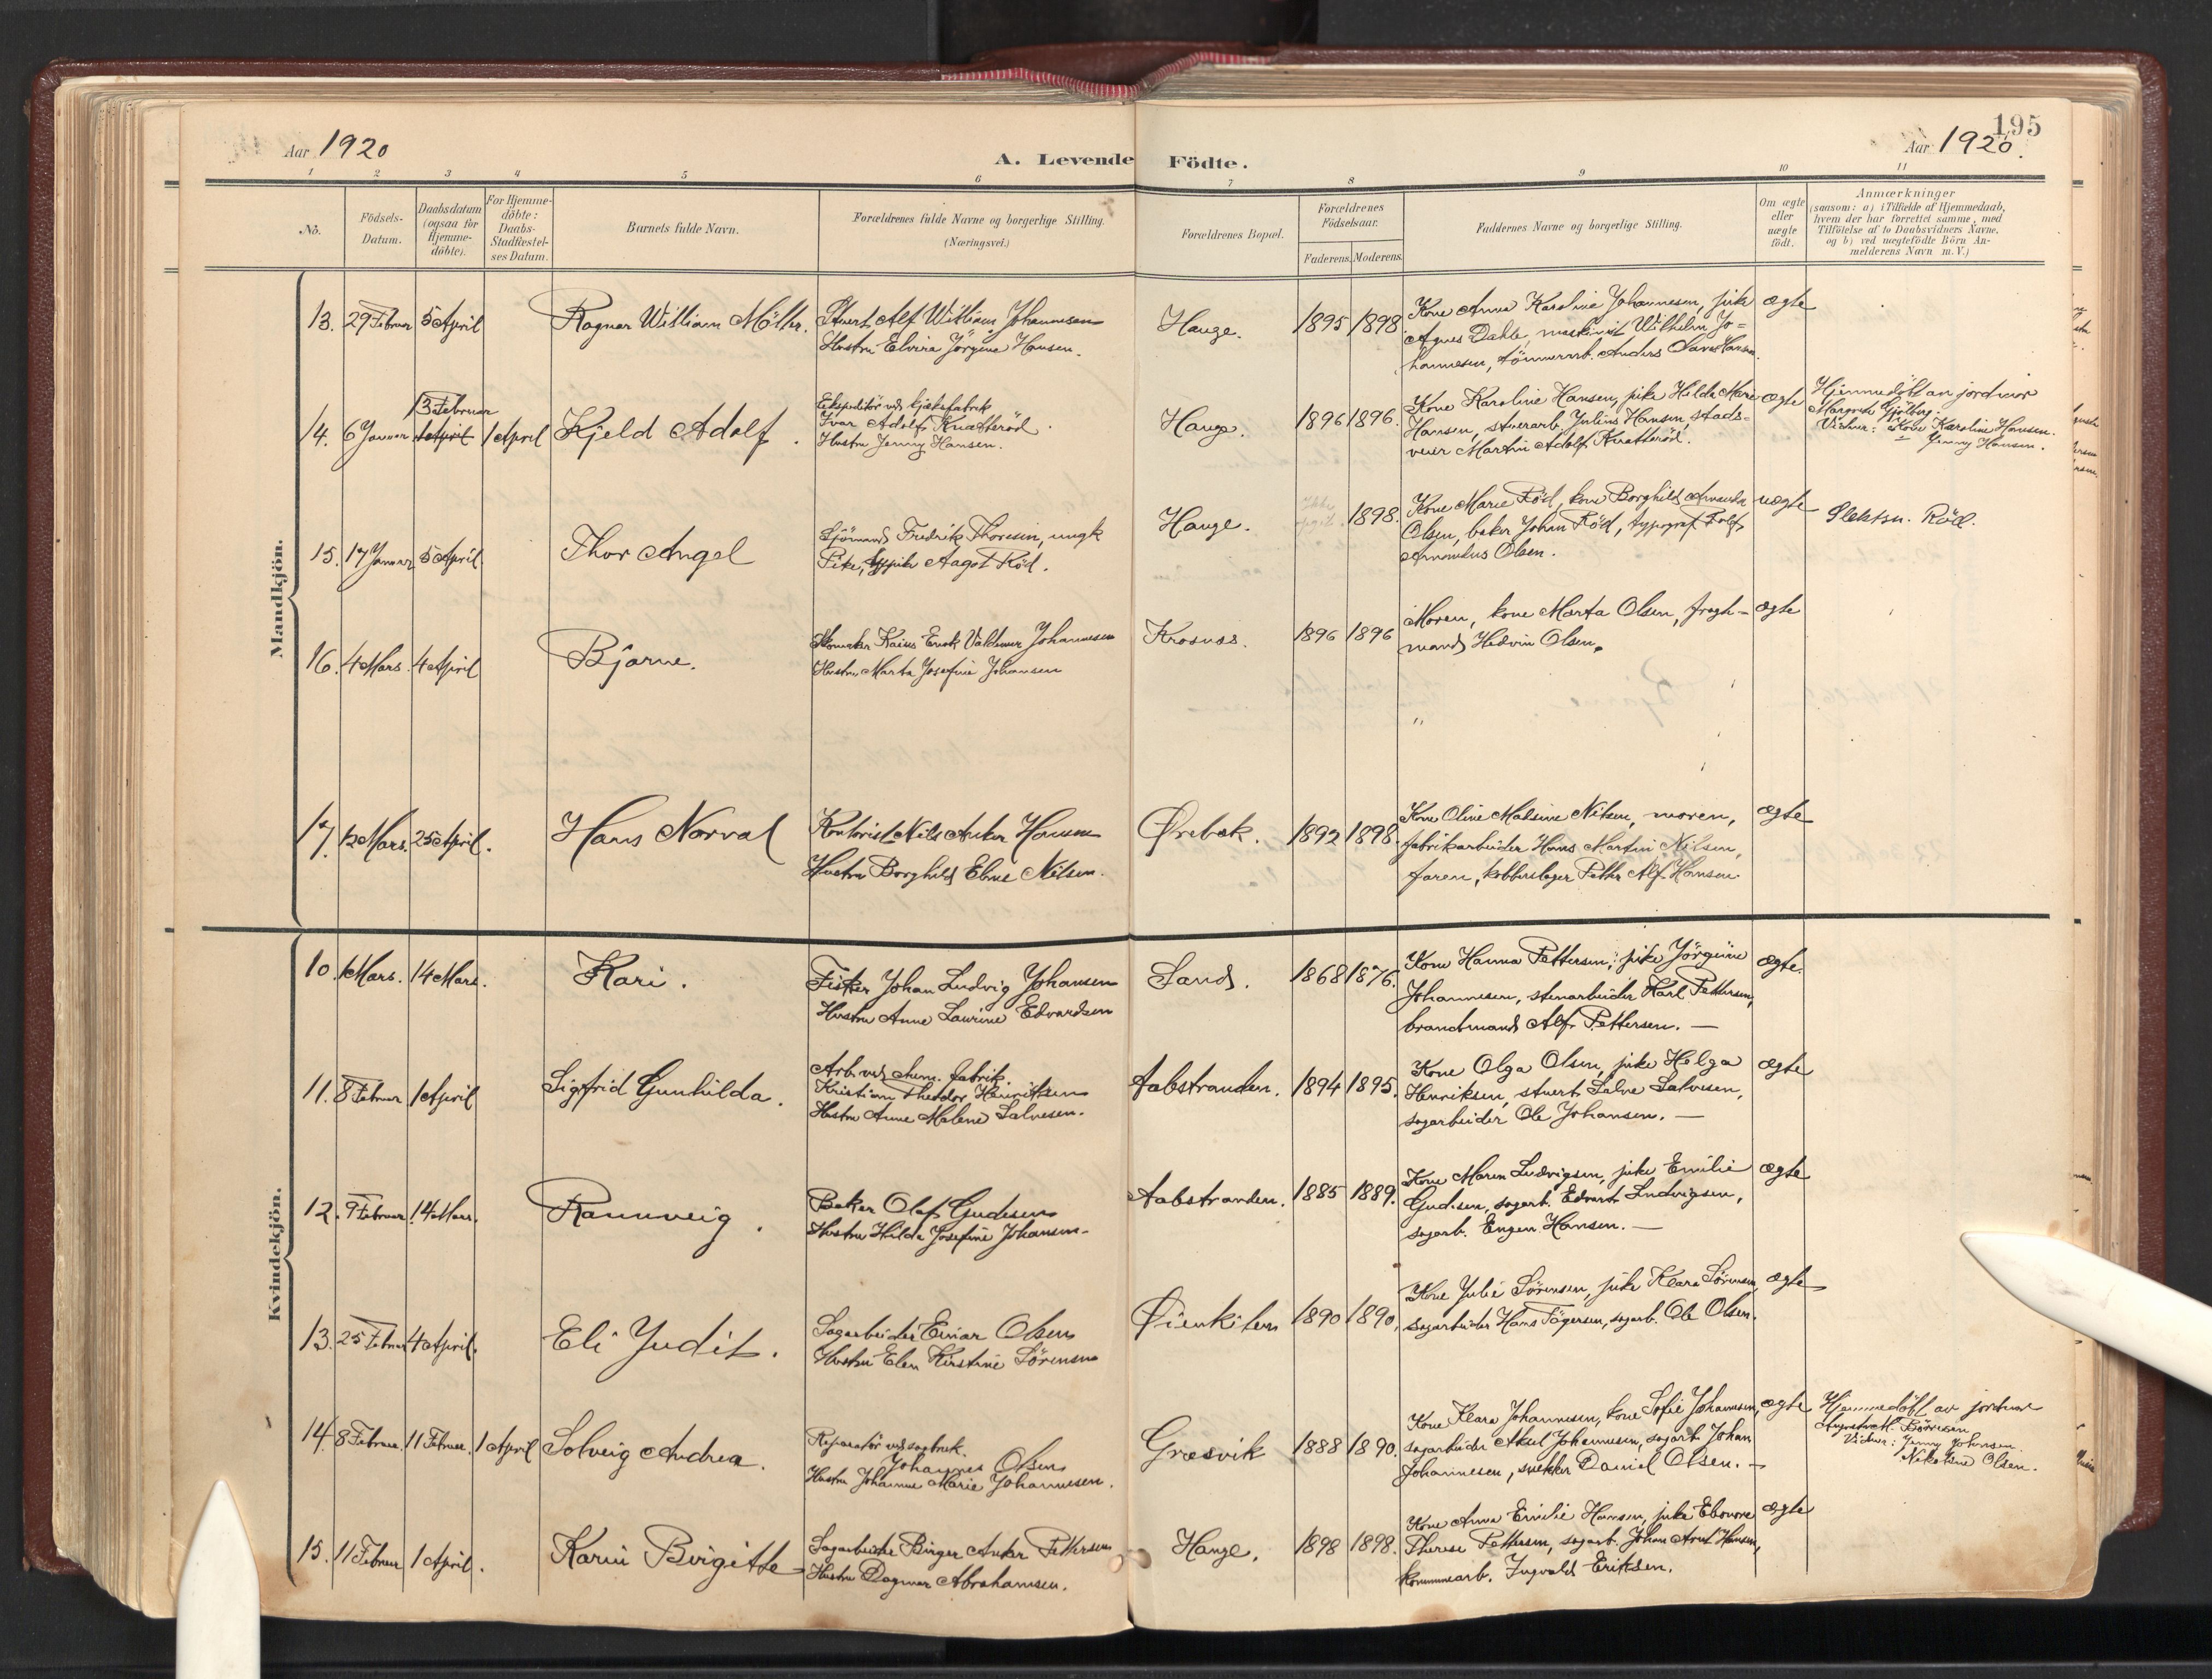 195
Aar 1920
Aar 1920.
A. Levende Födte.
1 2 3 4 5 6 7 8 9 10 11
No.
Födsels-
Datum.
Daabsdatum
(ogsaa for
Hjemme-
döbte).
For Hjemme-
döbte:
Daabs-
Stadfæstel-
ses Datum.
Barnets fulde Navn.
Forældrenes fulde Navne og borgerlige Stilling.
(Næringsvei.)
Forældrenes Bopæl.
Forældrenes
Födselsaar.
Faderens. Moderens.
Faddernes Navne og borgerlige Stilling.
Om ægte
eller
uægte
födt.
Anmærkninger
(saasom: a) i Tilfælde af Hjemmedaab,
hvem der har forrettet samme, med
Tilföielse af to Daabsvidners Navne,
og b) ved uægtefödte Börn An-
melderens Navn m. V.)
Mandkjön.
13. 29 Februar 5 April Ragnar William Möller. Stuert Alf William Johannesen
Hustru Elvira Jörgine Hansen.
Hauge. 1895 1898 Kone Anna Karoline Johannesen, pike ægte
Agnes Dahle, maskinist Wilhelm Jo=
hannesen, tömmerarb. Anders Hansen.
14. 6 Januar 13 Februar 1 April 1 April Kjeld Adolf. Ekspeditör ved kjæksfabrik
Ivar Adolf Knatteröd.
Hustru Jenny Hansen.
Hauge. 1896 1896. Kone Karoline Hansen, pike Hilda Marie ægte
Hansen, stuerarb. Julius Hansen, stads-
veier Martin Adolf Knatteröd.
Hjemmedöbt av jordmor
Margrete Gjölberg.
Vidner: Kone Karoline Hansen.
Jenny Hansen.
15. 17 Januar 5 April. Thor Angel Sjömand Fredrik Thoresen, ungk
Pike, Aagot Röd.
Hauge. 1898. Kone Marie Röd, kone Borghild Amanda uægte
Olsen, baker Johan Röd, typograf Rolf
Amandus Olsen.
Slektsn. Röd.
16. 4 Mars. 4 April Bjarne. Skomaker Enok Valdemar Johannesen
Hustru Marta Josefine Johansen
Krosnes. 1896 1896 Moren, kone Marta Olsen, fragt- ægte
mand Hedvin Olsen.
17. 12 Mars. 25 April. Hans Norval Kontorist Nils Anker Hansen
Hustru Borghild Elme Nilsen.
Ørebæk. 1892 1898. Kone Oline Malvine Nilsen, moren, ægte
fabrikarbeider Hans Martin Nilsen,
faren, kobberslager Petter Alf Hansen.
Kvindekjön.
10. 1 Mars. 14 Mars. Kari. Fisker Johan Ludvig Johansen
Hustru Anne Laurine Edvardsen
Sand. 1868 1876. Kone Hanna Pettersen, pike Jörgine ægte.
Johannesen, stenarbeider Karl Pettersen,
brandmand Alf Pettersen. —
11. 8 Februar 1 April Sigfrid Gunhilda. Arb. ved chem. fabrik.
Kristian Theodor Henriksen
Hustru Anne Malene Salvesen.
Aabstranden. 1894 1895. Kone Olga Olsen, pike Helga ægte
Henriksen, stuert Salve Salvesen,
sagarbeider Ole Johansen. —
12. 9 Februar 14 Mars. Rannveig. Baker Olaf Gudesen
Hustru Hilda Josefine Johansen-
Aabstranden. 1885 1889. Kone Maren Ludvigsen, pike Emilie ægte
Gudesen, sagarb. Edvart Ludvigsen,
sagarb. Eugen Hansen. —
13. 25 Februar 4 April. Eli Judit. Sagarbeider Einar Olsen
Hustru Elen Kirstine Sörensen
Øienkilen 1890 1890. Kone Julie Sörensen, pike Klara Sörensen, ægte
sagarbeider Hans Tögersen, sagarb. Ole Olsen.
14. 8 Februar. 11 Februar. 1 April Solveig Andrea. Reparatör ved sagbruk.
Johannes Olsen
Hustru Johanne Marie Johannesen.
Græsvik 1888 1890. Kone Klara Johannesen, kone Sofie Johannesen, ægte
sagarbeider Aksel Johannesen, sagarb. Johan
Johannesen, snekker Daniel Olsen. —
Hjemmedöbt av jordmor
Vidner: Jenny Johansen.
Nikoline Olsen.
15. 11 Februar 1 April. Karin Birgitte Sagarbeider Birger Anker Pettersen
Hustru Dagmar Abrahamsen.
Hauge. 1898 1898. Kone Anna Emilie Hansen, pike Eleonore ægte
Therese Pettersen, sagarb. Johan Arnt Hansen,
kommunearb. Ingvald Eriksen.